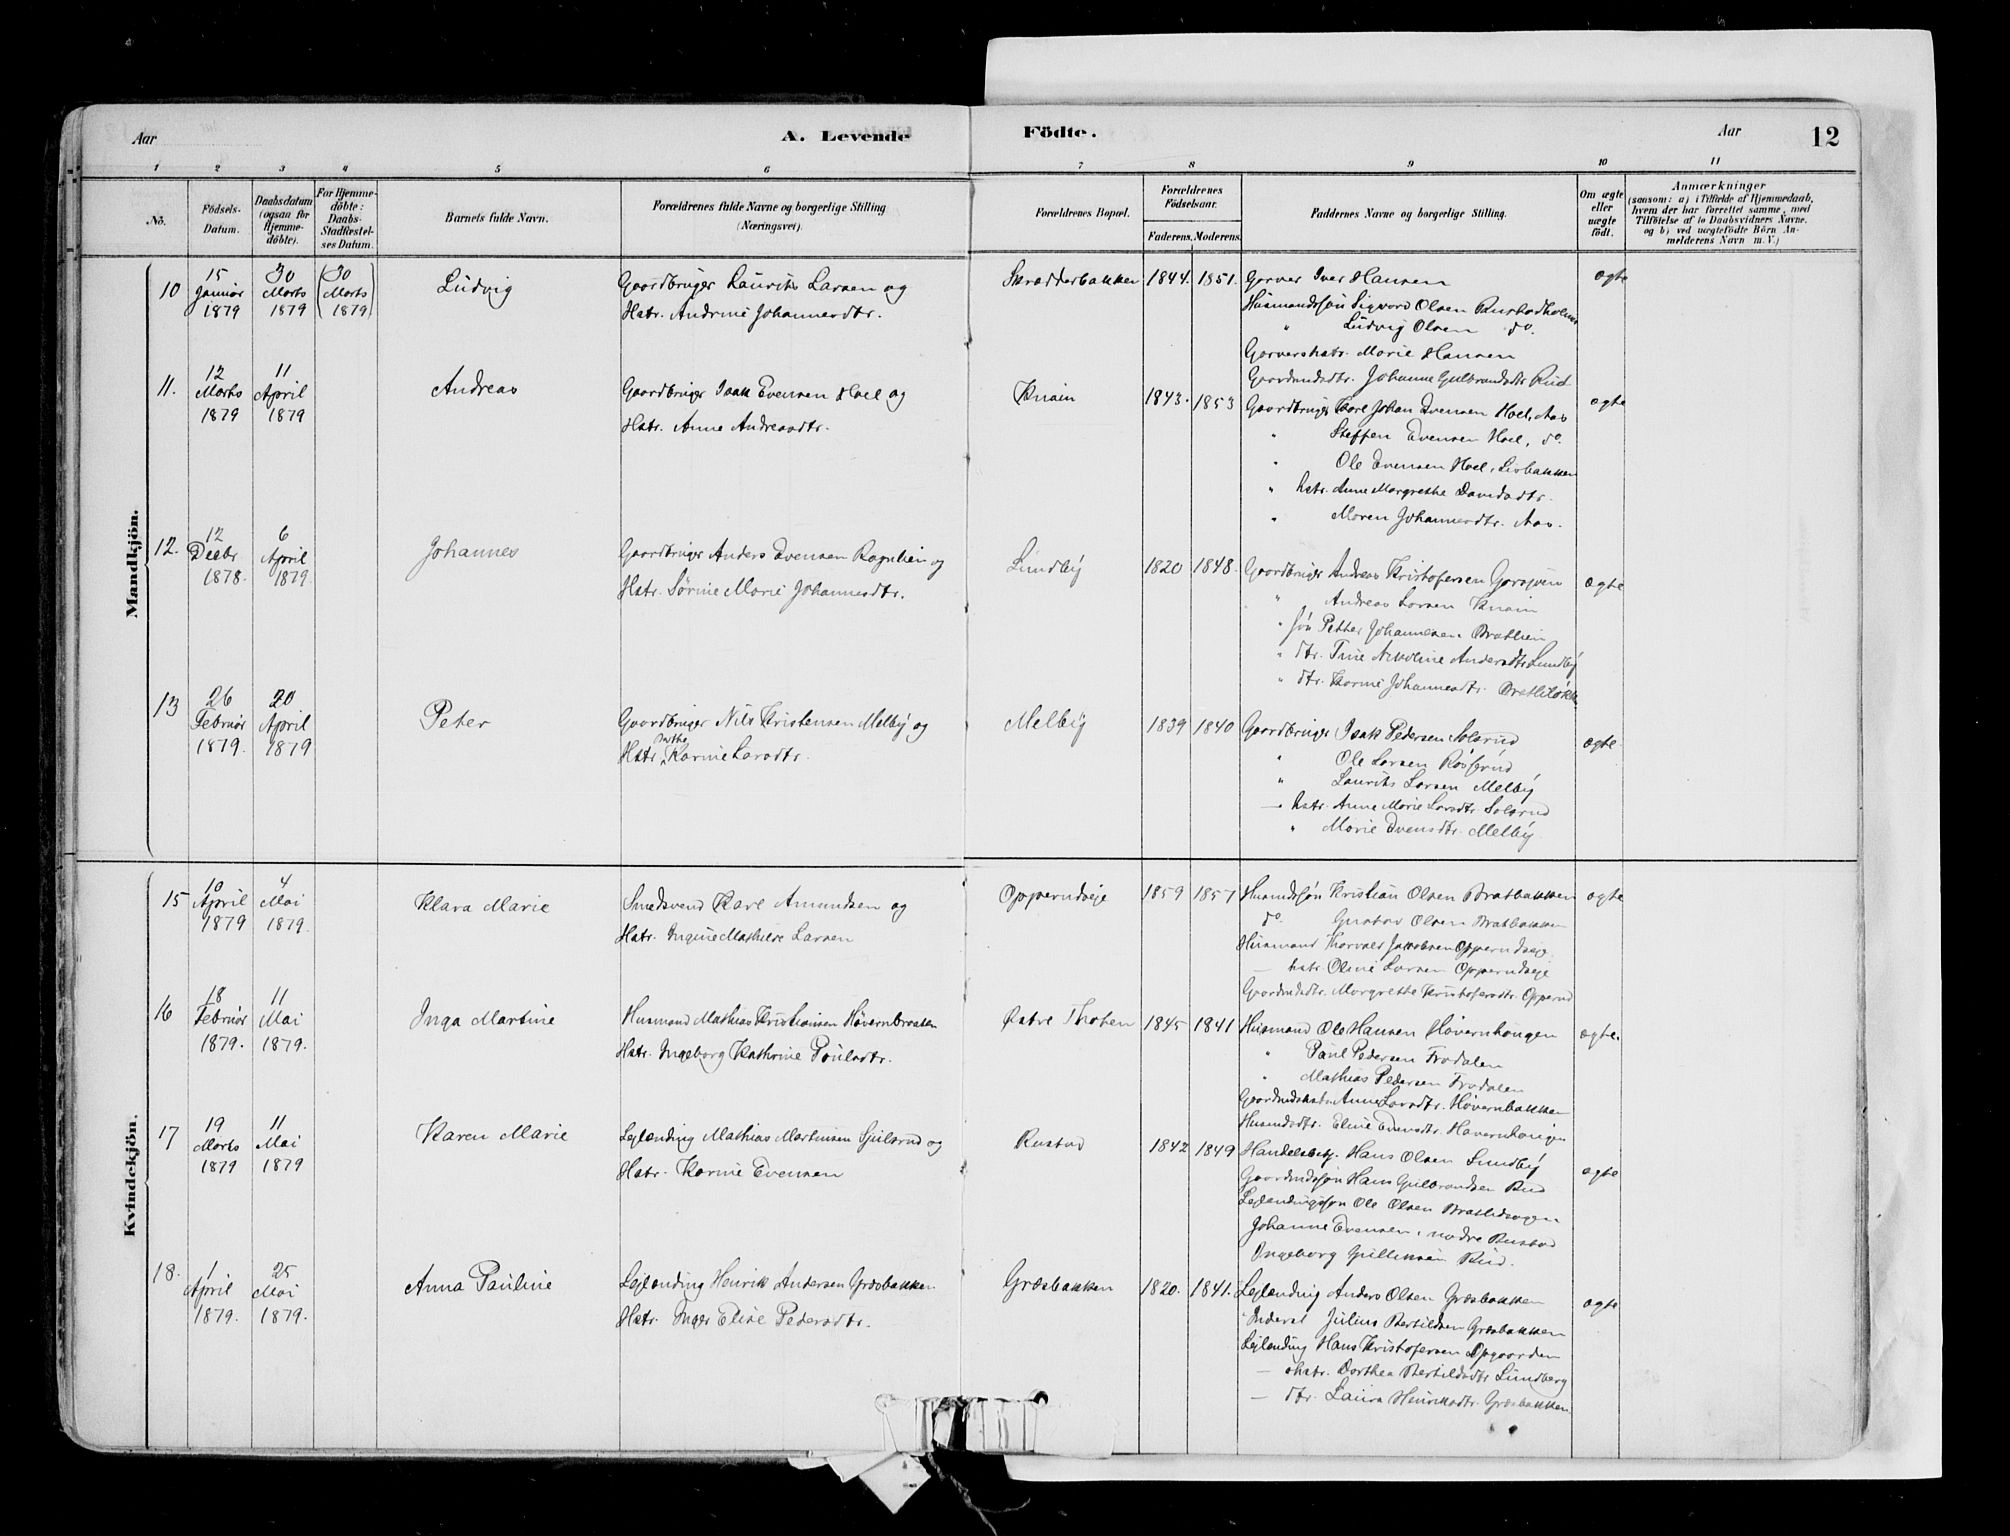 Aar
A. Levende Födte.
Aar
12
1 2 3 4 5 6 7 8 9 10 11
No.
Födsels-Datum.
Daabsdatum (ogsaa for Hjemme-döbte).
For Hjemme-döbte: Daabs-Stadfæstel-ses Datum.
Barnets fulde Navn.
Forældrenes fulde Navne og borgerlige Stilling (Næringsvei).
Forældrenes Bopæl.
Forældrenes Födselsaar.
Faderens. Moderens.
Faddernes Navne og borgerlige Stilling.
Om ægte eller uægte födt.
Anmærkninger
(saasom: a) i Tilfælde af Hjemmedaab, hvem der har forrettet samme, med Tilföielse af to Daabsvidners Navne, og b) ved uægtefödte Börn An-melderens Navn m. V.)
Mandkjön.
10 15 Januar 1879 30 Marts 1879 (30 Marts 1879) Ludvig
Gaardbruger Laurits Larsen og
Hstr. Andrine Johannesdtr.
Skrædderbakken 1844. 1851.
Garver Iver Hansen
Husmandssøn Sigvard Olsen Rustadholmen
" Ludvig Olsen do.
Garverhstr. Marie Hansen
Gaardmdsdtr. Johanne Gulbrandsdtr Rud
ægte
11. 12 Marts 1879 11 April 1879 Andreas
Gaardbruger Isak Evensen Hoel og
Hstr. Anne Andreasdtr.
Knain 1843. 1853
Gaardbruger Karl Johan Evensen Hoel, Aas
" Steffen Evensen Hoel, do.
" Ole Evensen Hoel,
" hstr. Anne Margrethe Davidsdtr.
" Maren Johannesdtr. Aas.
ægte
12. 12 Decbr 1878. 6 April 1879. Johannes
Gaardbruger Anders Evensen Rognlien og
Hstr. Sørine Marie Johannesdtr.
Lundby 1820 1848.
Gaardbruger Andreas Kristofersen
" Andreas Larsen Knain
" søn Petter Johannesen Bratlien
" dtr. Trine Nikoline Andersdtr Lundby
" dtr. Karine Johannesdtr.
ægte
13 26 Februar 1879. 20 April 1879 Peter
Gaardbruger Nils Kristensen Melby og
Hstr. Berthe Karine Larsdtr.
Melby 1839 1840
Gaardbruger Isak Pedersen Solsrud
" Ole Larsen Røsserud
" Laurits Larsen Melby
— hstr. Anne Marie Larsdtr. Solsrud
" Marie Evensdtr. Melby.
ægte
Kvindekjön.
15 10 April 1879 4 Mai 1879. Klara Marie
Smedsvend Karl Amundsen og
Hstr. Ingine Mathilde Larsen
Opperudseje 1859 1857
Husmdssøn Kristian Olsen Bratbakken
do. Gustav Olsen Bratbakken
Husmand Thorvald Jakobsen Opperudseje
— hstr. Oline Larsen Opperudseje
Gaardmdsdtr. Margrethe Kristofersdtr. Opperud
ægte
16 18 Februar 1879. 11 Mai 1879. Inga Martine
Husmand Mathias Kristiansen Høvernbraaten
Hstr. Ingeborg Kathrine Poulsdtr.
Østre Thoten 1845 1841
Husmand Ole Hansen Høvernhaugen
" Paul Pedersen Frodalen
" Mathias Pedersen Frodalen
Gaardmdshstr. Anne Larsdtr. Høvernbakken
Husmdsdtr. Eline Evensdtr. Høvernhaugen
ægte.
17 19 Marts 1879 11 Mai 1879 Karen Marie
Lejlending Mathias Martinsen Sjulsrud og
Hstr. Karine Evensen
Rustad 1842 1849
Handelsbetj. Hans Olsen Lundby
Gaardmdssøn Hans Gulbrandsen Rud
Lejlendingssøn Ole Olsen
Johanne Evensen, nødre Rustad
Ingeborg Gulliksen Rud.
ægte
18. 1 April 1879. 25 Mai 1879. Anna Pauline
Lejlending Henrik Andersen Græsbakken
Hstr. Inger Elise Pedersdtr.
Græsbakken 1820. 1841.
Lejlending Anders Olsen Græsbakken
Inderst Julius Bertildsen Græsbakken
Lejlending Hans Kristofersen Opgaarden
— hstr. Dorthea Bertildsdtr Lundberg
— dtr. Laura Henriksdtr. Græsbakken
ægte